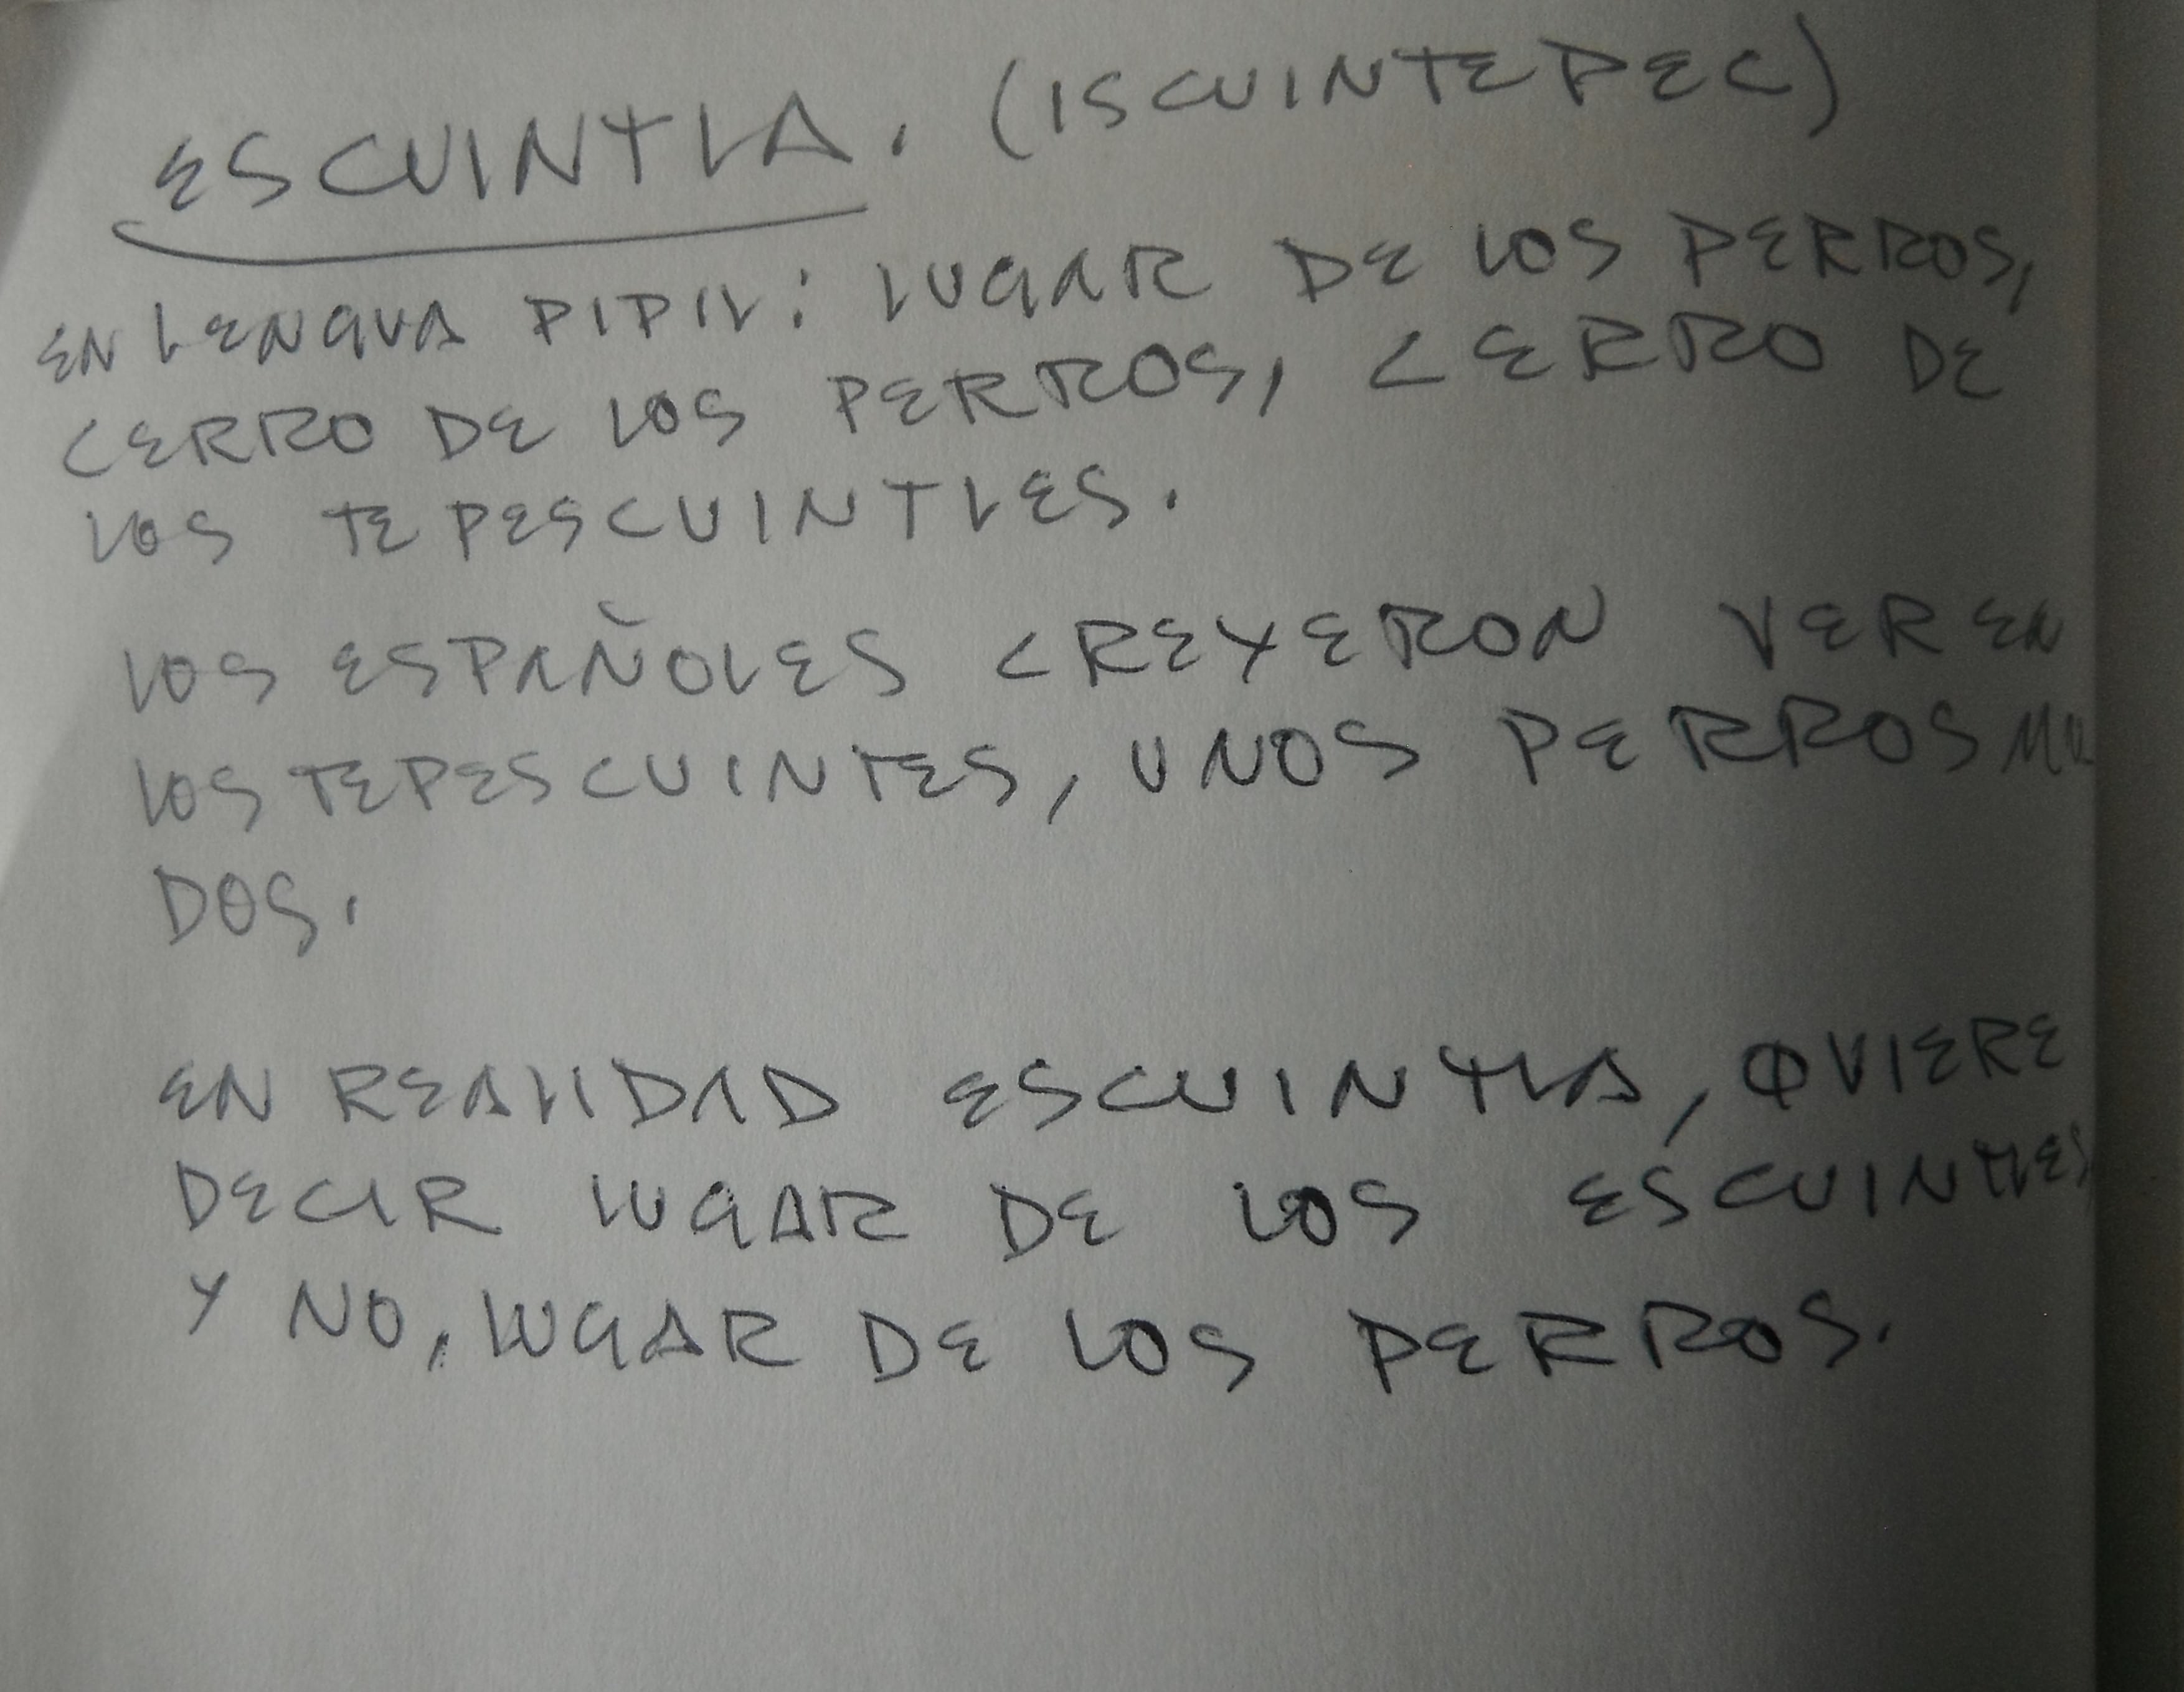 ESCUINTLA. (ISCUINTEPEC)
EN LENGUA PIPIL: LUGAR DE LOS PERROS,
CERRO DE LOS PERROS, CERRO DE
LOS TEPESCUINTLES.
LOS ESPAÑOLES CREYERON VER EN
LOS TEPESCUINTES, UNOS PERROS MU
DOS.
EN REALIDAD ESCUINTLA, QUIERE
DECIR LUGAR DE LOS ESCUINTLES
Y NO, LUGAR DE LOS PERROS.